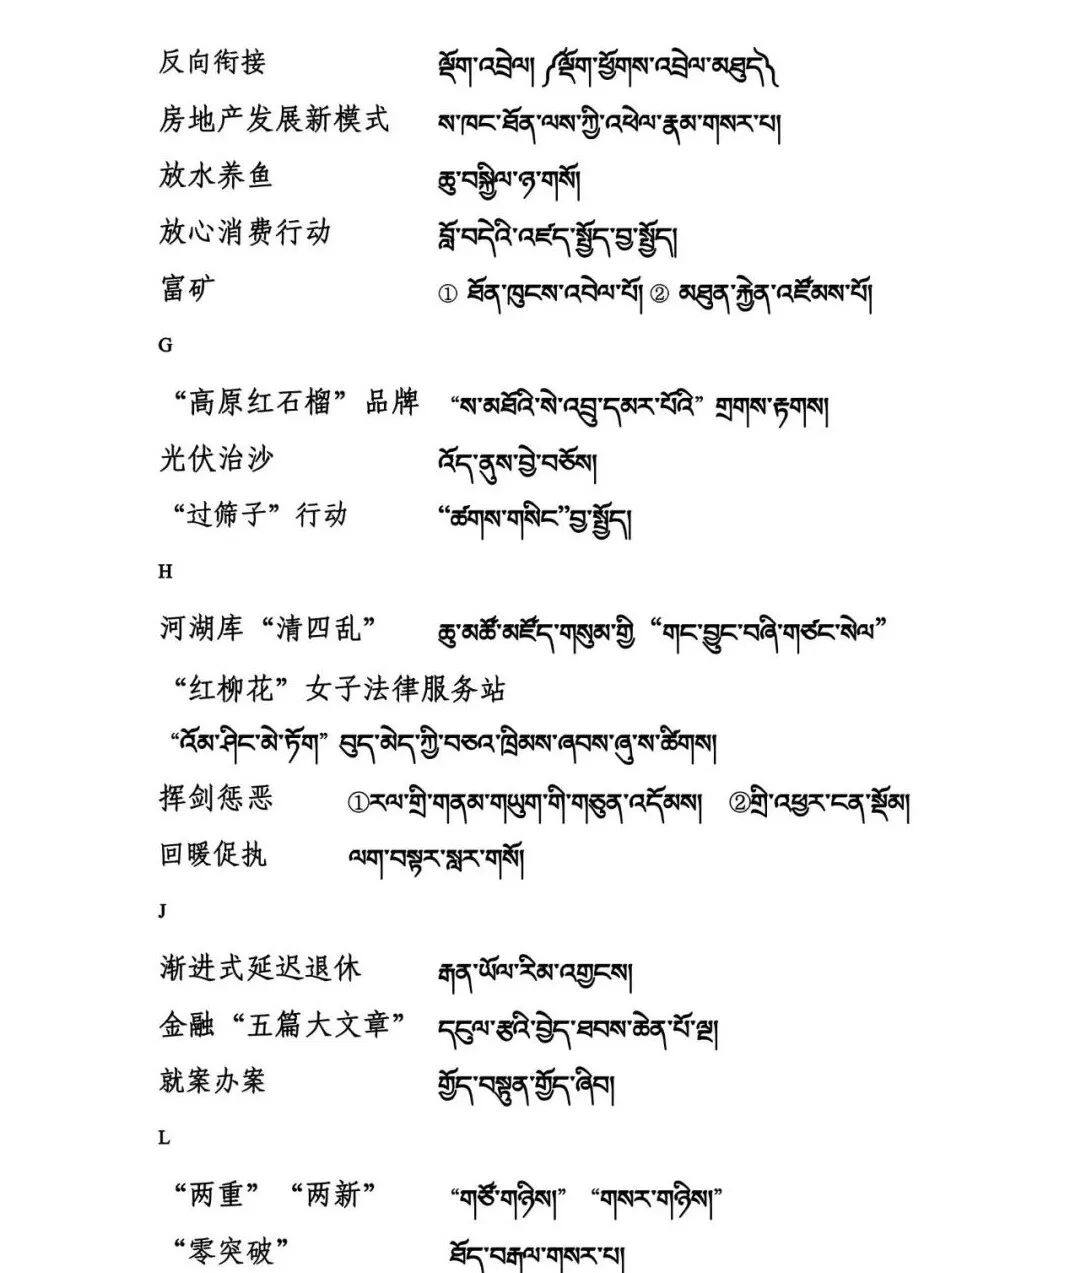 反向衔接 ལྡོག་འབྲེལ། ༼ལྡོག་ཕྱོགས་འབྲེལ་མཐུད༽
房地产发展新模式 ས་ཁང་ཐོན་ལས་ཀྱི་འཕེལ་རྣམ་གསར་པ།
放水养鱼 ཆུ་བསྐྱིལ་ཉ་གསོ།
放心消费行动 བློ་བདེའི་འཛད་སྤྱོད་བྱ་སྤྱོད།
富矿 ① ཐོན་ཁུངས་འབེལ་པོ། ② མཐུན་རྐྱེན་འཛོམས་པོ།
G
“高原红石榴”品牌 “ས་མཐོའི་སེ་འབྲུ་དམར་པོའི” གྲགས་རྟགས།
光伏治沙 འོད་ནུས་བྱེ་བཅོས།
“过筛子”行动 “ཚགས་གསིང”བྱ་སྤྱོད།
H
河湖库“清四乱” ཆུ་མཚོ་མཛོད་གསུམ་གྱི “གང་བྱུང་བཞི་གཙང་སེལ”
“红柳花”女子法律服务站
“འོམ་ཤིང་མེ་ཏོག” བུད་མེད་ཀྱི་བཅའ་ཁྲིམས་ཞབས་ཞུ་ས་ཚིགས།
挥剑惩恶 ①རལ་གྲི་གནམ་གཡུག་གི་གཅུན་འདོམས། ②གྲི་འཕྱར་ངན་སྡོམ།
回暖促执 ལག་བསྟར་སླར་གསོ།
J
渐进式延迟退休 རྒན་ཡོལ་རིམ་འགྱངས།
金融“五篇大文章” དངུལ་རྩའི་བྱེད་ཐབས་ཆེན་པོ་ལྔ།
就案办案 གྱོད་བསྟུན་གྱོད་ཞིབ།
L
“两重”“两新” “གཙོ་གཉིས།” “གསར་གཉིས།”
“零突破” ཐོད་བརྒལ་གསར་པ།